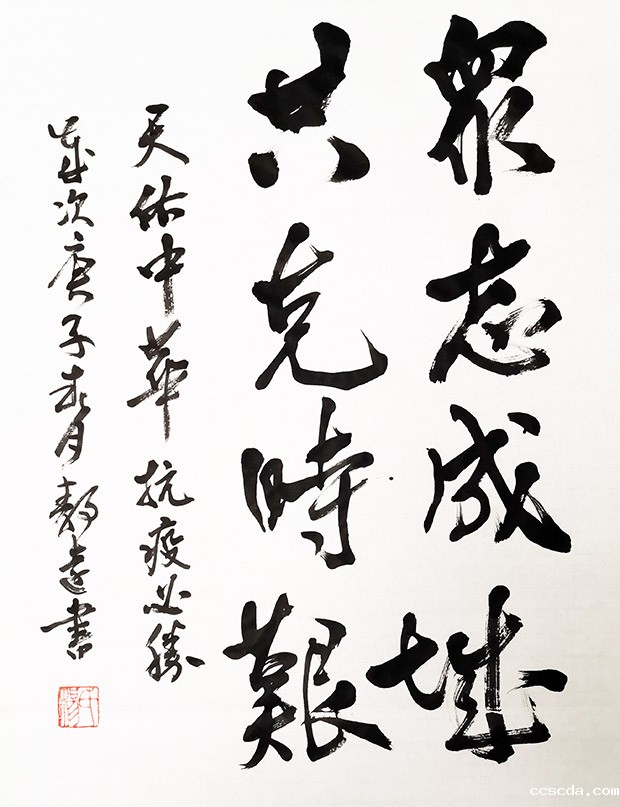 眾志成城
共克時艱
天佑中華抗疫必勝
歲次庚子春月 書
ccscda.com